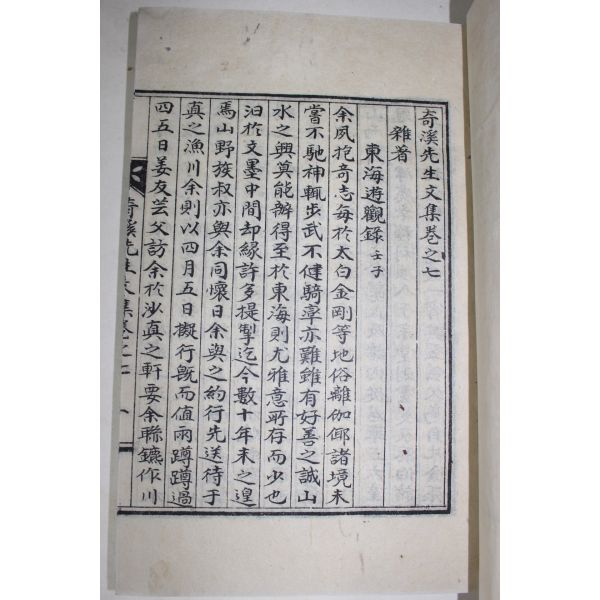 奇溪先生文集卷之七
雜著
東海遊觀錄 壬子
余夙抱奇志每於太白金剛等地俗離伽倻諸境未
嘗不馳神輒步武不健騎率亦難雖有好善之誠山
水之興莫能辦得至於東海則尤雅意所存而少也
汩於文墨中間却緣許多提掣迄今數十年未之遑
焉山野族叔亦與余同懷日余與之約行先送待于
真之漁川余則以四月五日擬行旣而値雨蹲蹲過
四五日姜友芸父訪余於沙真之軒要余聯鑣作川
奇溪先生文集卷之七 一